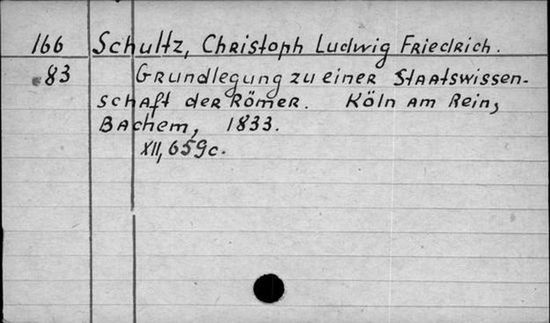 166 Schultz, Christoph Ludwig Friedrich.
.83 Grundlegung zu einer Staatswissen-
schaft der Römer. Köln am Rein,
Bachem, 1833.
XII, 659c.